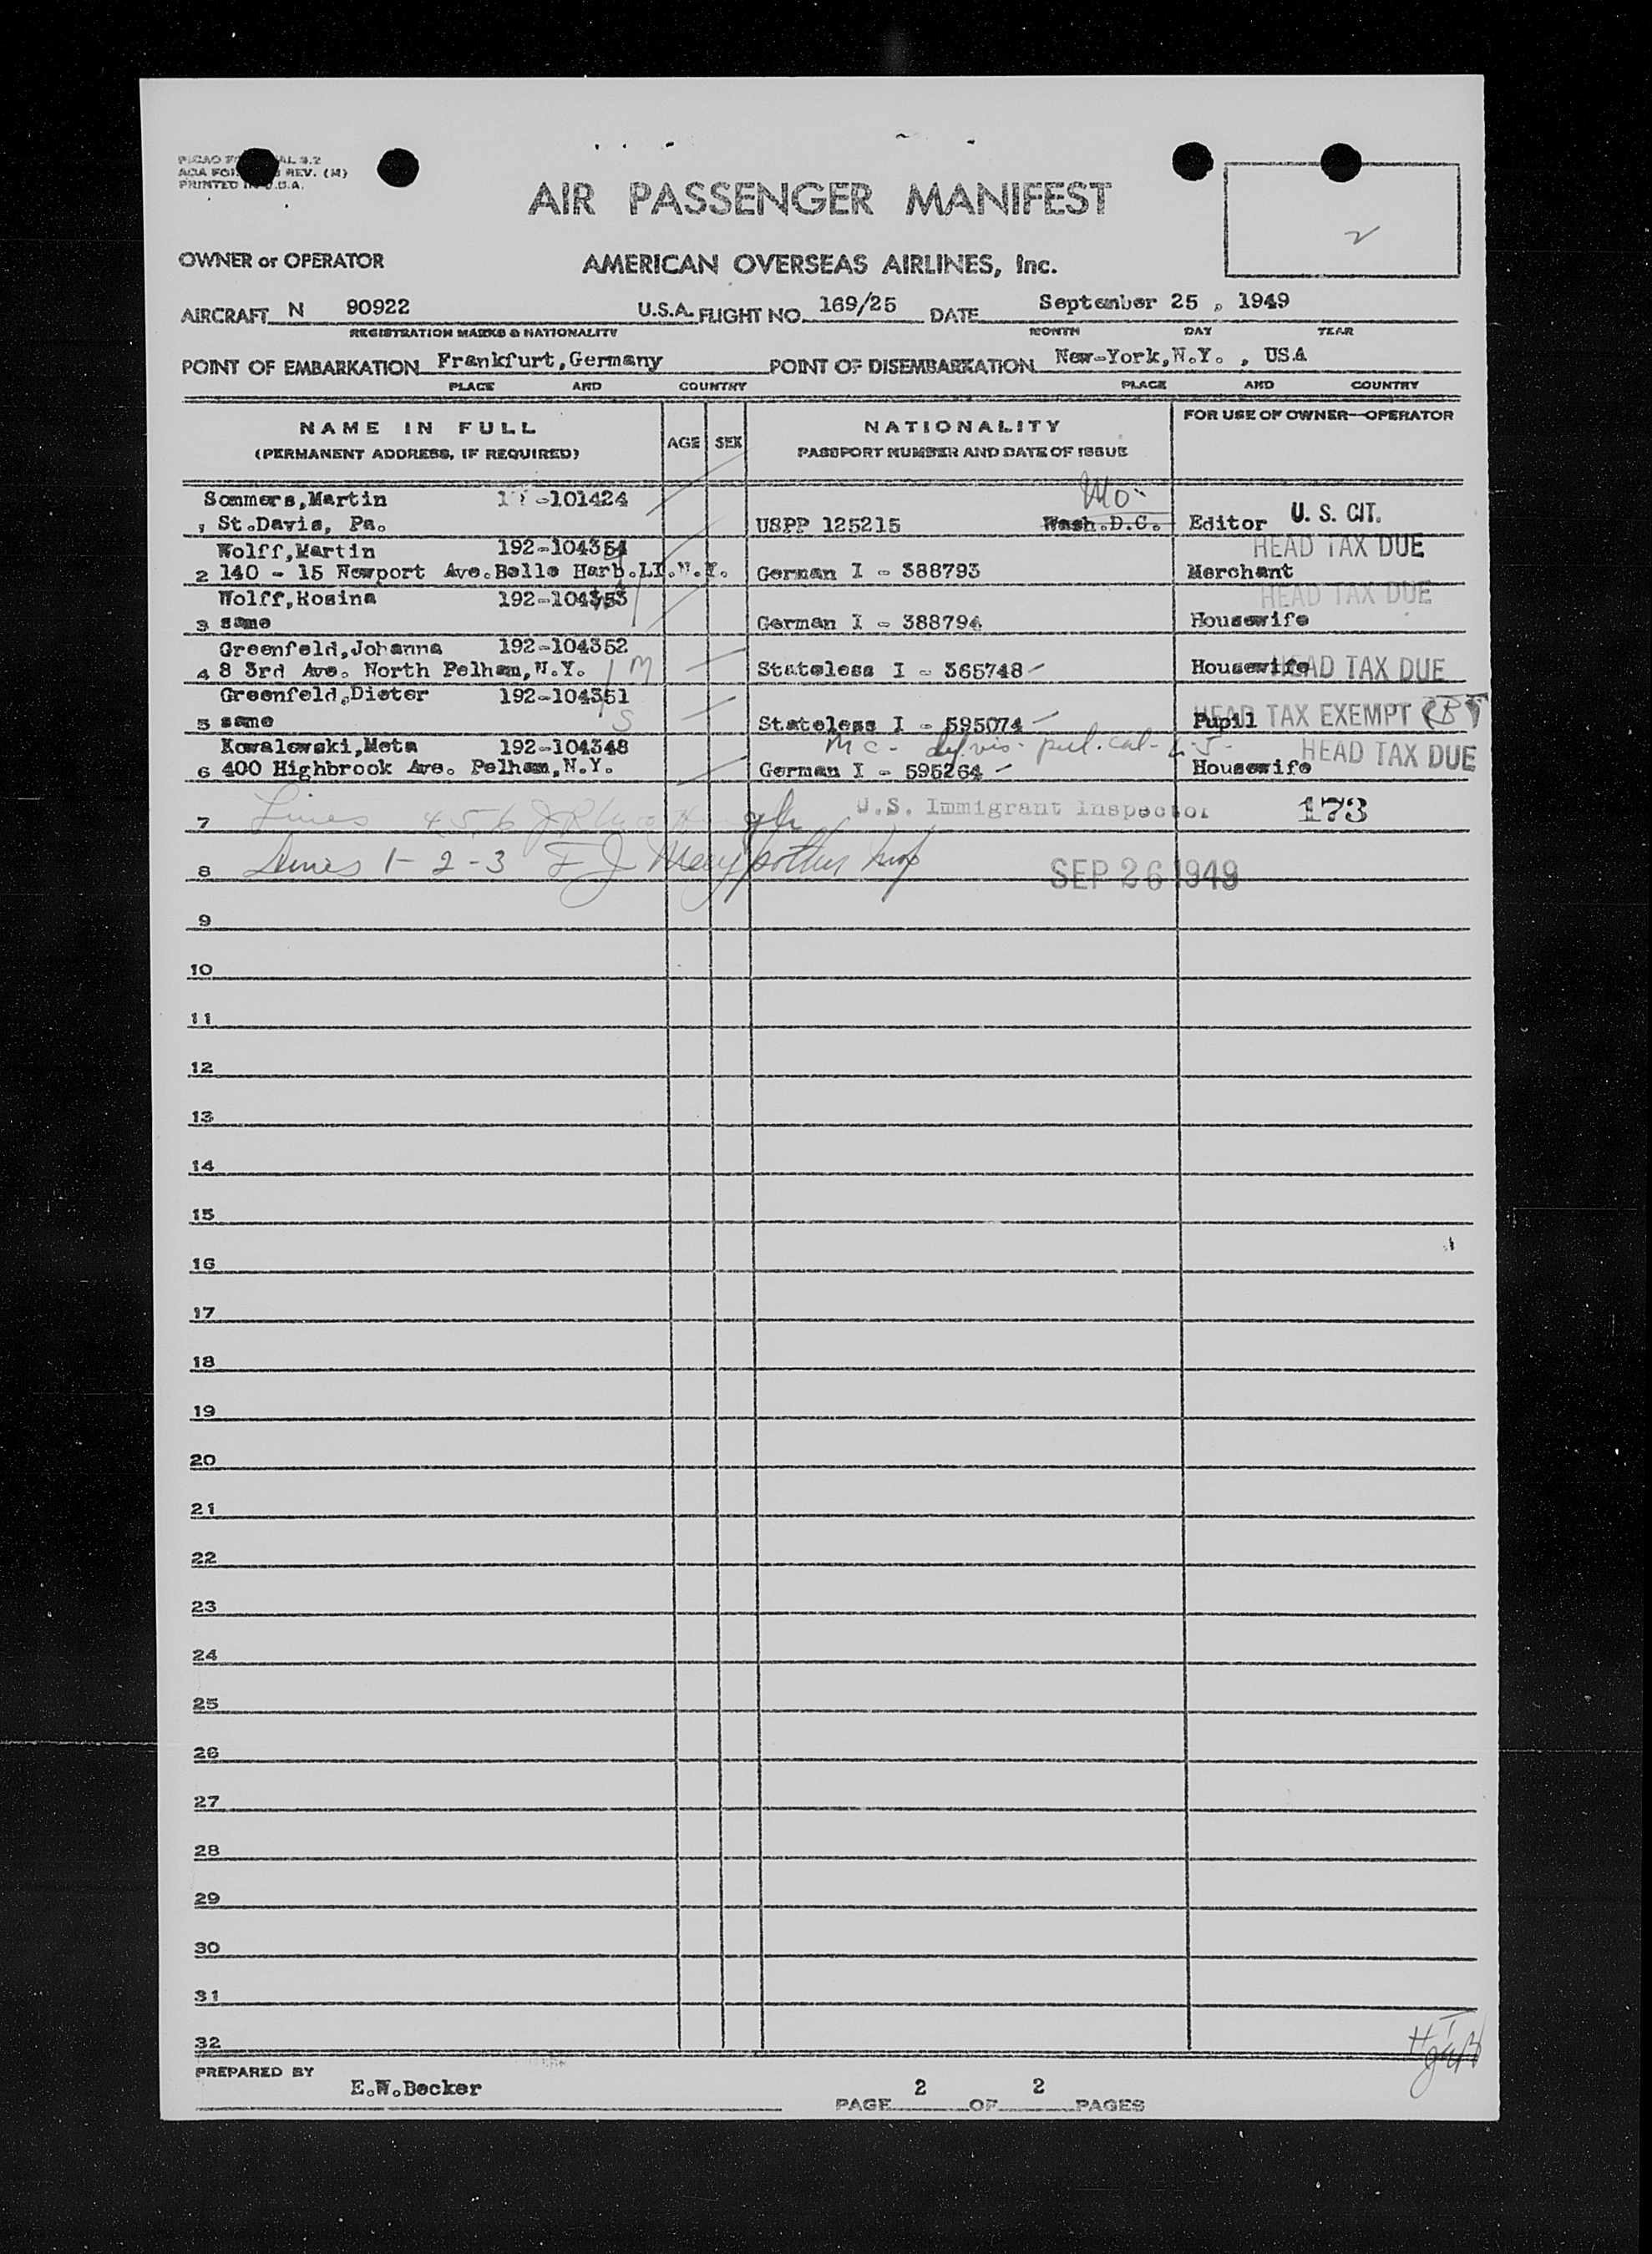 PRINTED IN U.S.A.
REV. (M)
AIR PASSENGER MANIFEST
2
OWNER or OPERATOR
AMERICAN OVERSEAS AIRLINES, Inc.
AIRCRAFT N 90922 U.S.A. FLIGHT NO. 169/25 DATE September 25, 1949
REGISTRATION MARKS & NATIONALITY MONTH DAY YEAR
POINT OF EMBARKATION Frankfurt,Germany POINT OF DISEMBARKATION New-York,N.Y. , USA
PLACE AND COUNTRY PLACE AND COUNTRY
NAME IN FULL AGE SEX NATIONALITY FOR USE OF OWNER—OPERATOR
(PERMANENT ADDRESS, IF REQUIRED) PASSPORT NUMBER AND DATE OF ISSUE
Sommers,Martin -101424 Mo-
1 St.Davis, Pa. USPP 125215 Wash.D.C. Editor U. S. CIT.
Wolff,Martin 192-104354 HEAD TAX DUE
2 140 - 15 Newport Ave.Belle Harb.LI.N.Y. German I - 388793 Merchant
Wolff,Rosina 192-104353 HEAD TAX DUE
3 same German I - 388794 Housewife
Greenfeld,Johanna 192-104352
4 8 3rd Ave. North Pelham,N.Y. M Stateless I - 365748 Housewife HEAD TAX DUE
Greenfeld,Dieter 192-104351
5 same S Stateless I - 595074 Pupil HEAD TAX EXEMPT
Kowalewski,Meta 192-104348 HEAD TAX DUE
6 400 Highbrook Ave. Pelham,N.Y. German I - 595264 Housewife
7 Lines 4 5, 6 U.S. Immigrant Inspector 173
8 Lines 1 - 2 - 3 F J SEP 26 1949
9
10
11
12
13
14
15
16
17
18
19
20
21
22
23
24
25
26
27
28
29
30
31
32
PREPARED BY
E.W.Becker
PAGE 2 OF 2 PAGES